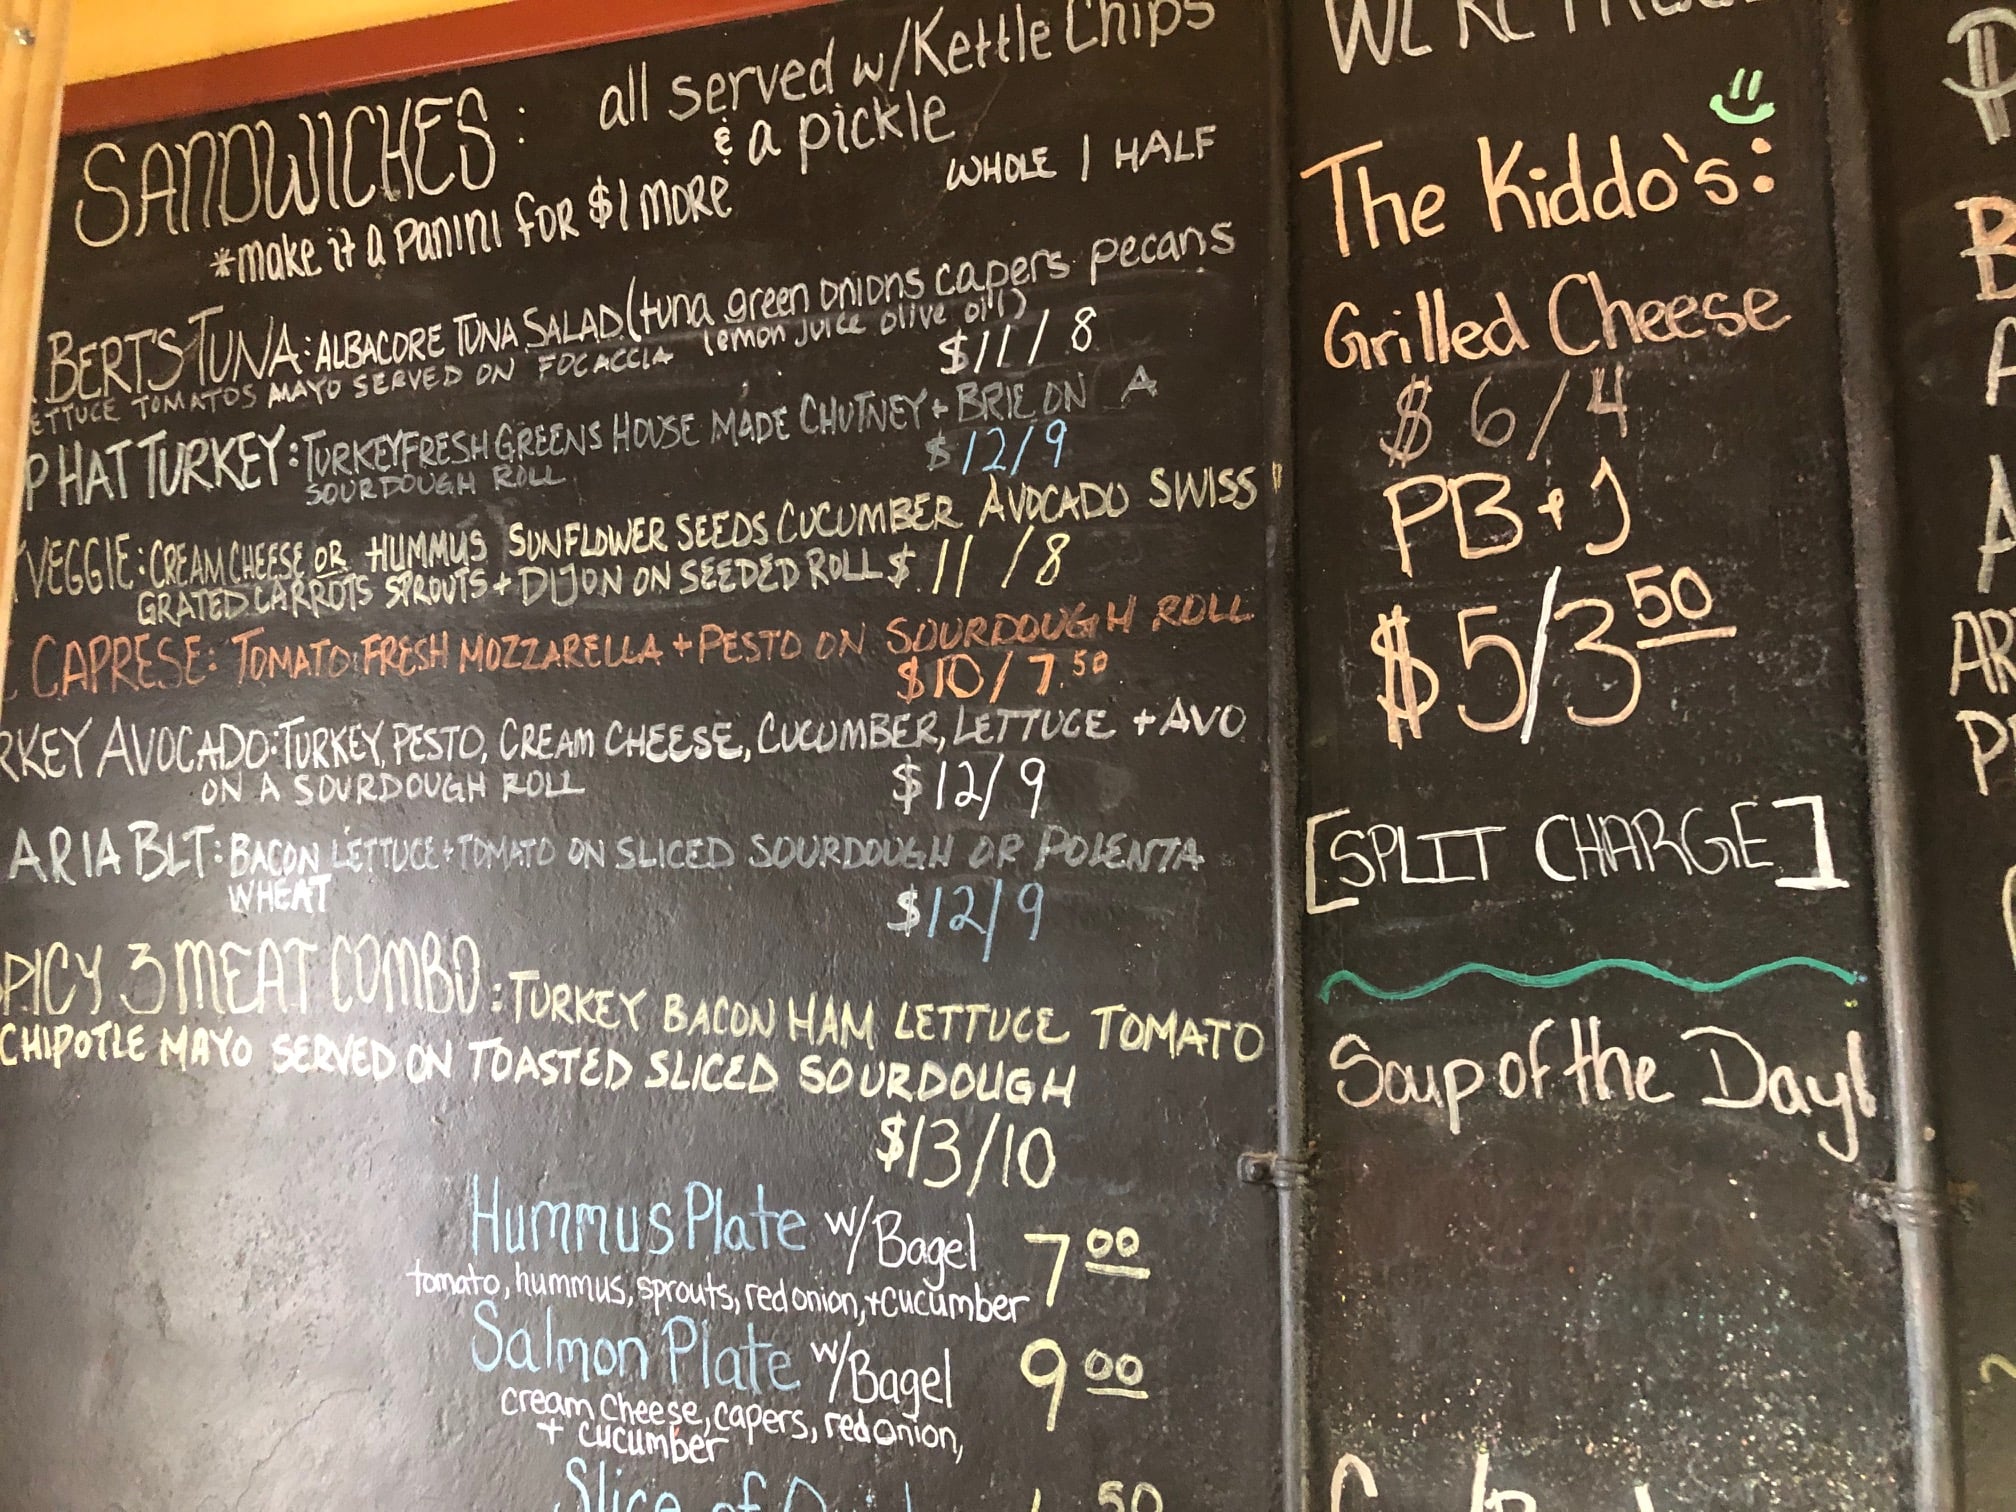 SANDWICHES: all served w/Kettle Chips
& a pickle
*make it a PANINI for $1 MORE
WHOLE | HALF
BERT'S TUNA: ALBACORE TUNA SALAD (tuna green onions capers pecans
lemon juice olive oil)
ETTUCE TOMATOS MAYO SERVED ON FOCACCIA
$11/8
PHAT TURKEY: TURKEY FRESH GREENS HOUSE MADE CHUTNEY + BRIE ON A
SOURDOUGH ROLL
$12/9
VEGGIE: CREAM CHEESE OR HUMMUS SUNFLOWER SEEDS CUCUMBER AVOCADO SWISS
GRATED CARROTS SPROUTS + DIJON ON SEEDED ROLL $11/8
CAPRESE: TOMATO FRESH MOZZARELLA + PESTO ON SOURDOUGH ROLL
$10/7.50
RKEY AVOCADO: TURKEY, PESTO, CREAM CHEESE, CUCUMBER, LETTUCE + AVO
ON A SOURDOUGH ROLL
$12/9
ARIA BLT: BACON LETTUCE + TOMATO ON SLICED SOURDOUGH OR POLENTA
WHEAT
$12/9
PICY 3 MEAT COMBO: TURKEY BACON HAM LETTUCE TOMATO
CHIPOTLE MAYO SERVED ON TOASTED SLICED SOURDOUGH
$13/10
Hummus Plate w/Bagel 7 00
tomato, hummus, sprouts, red onion, + cucumber
Salmon Plate w/Bagel 9 00
cream cheese, capers, red onion,
+ cucumber
Slice of
50
WE'RE
The Kiddo's:
Grilled Cheese
$6/4
PB + J
$5/3 50
[SPLIT CHARGE]
Soup of the Day!